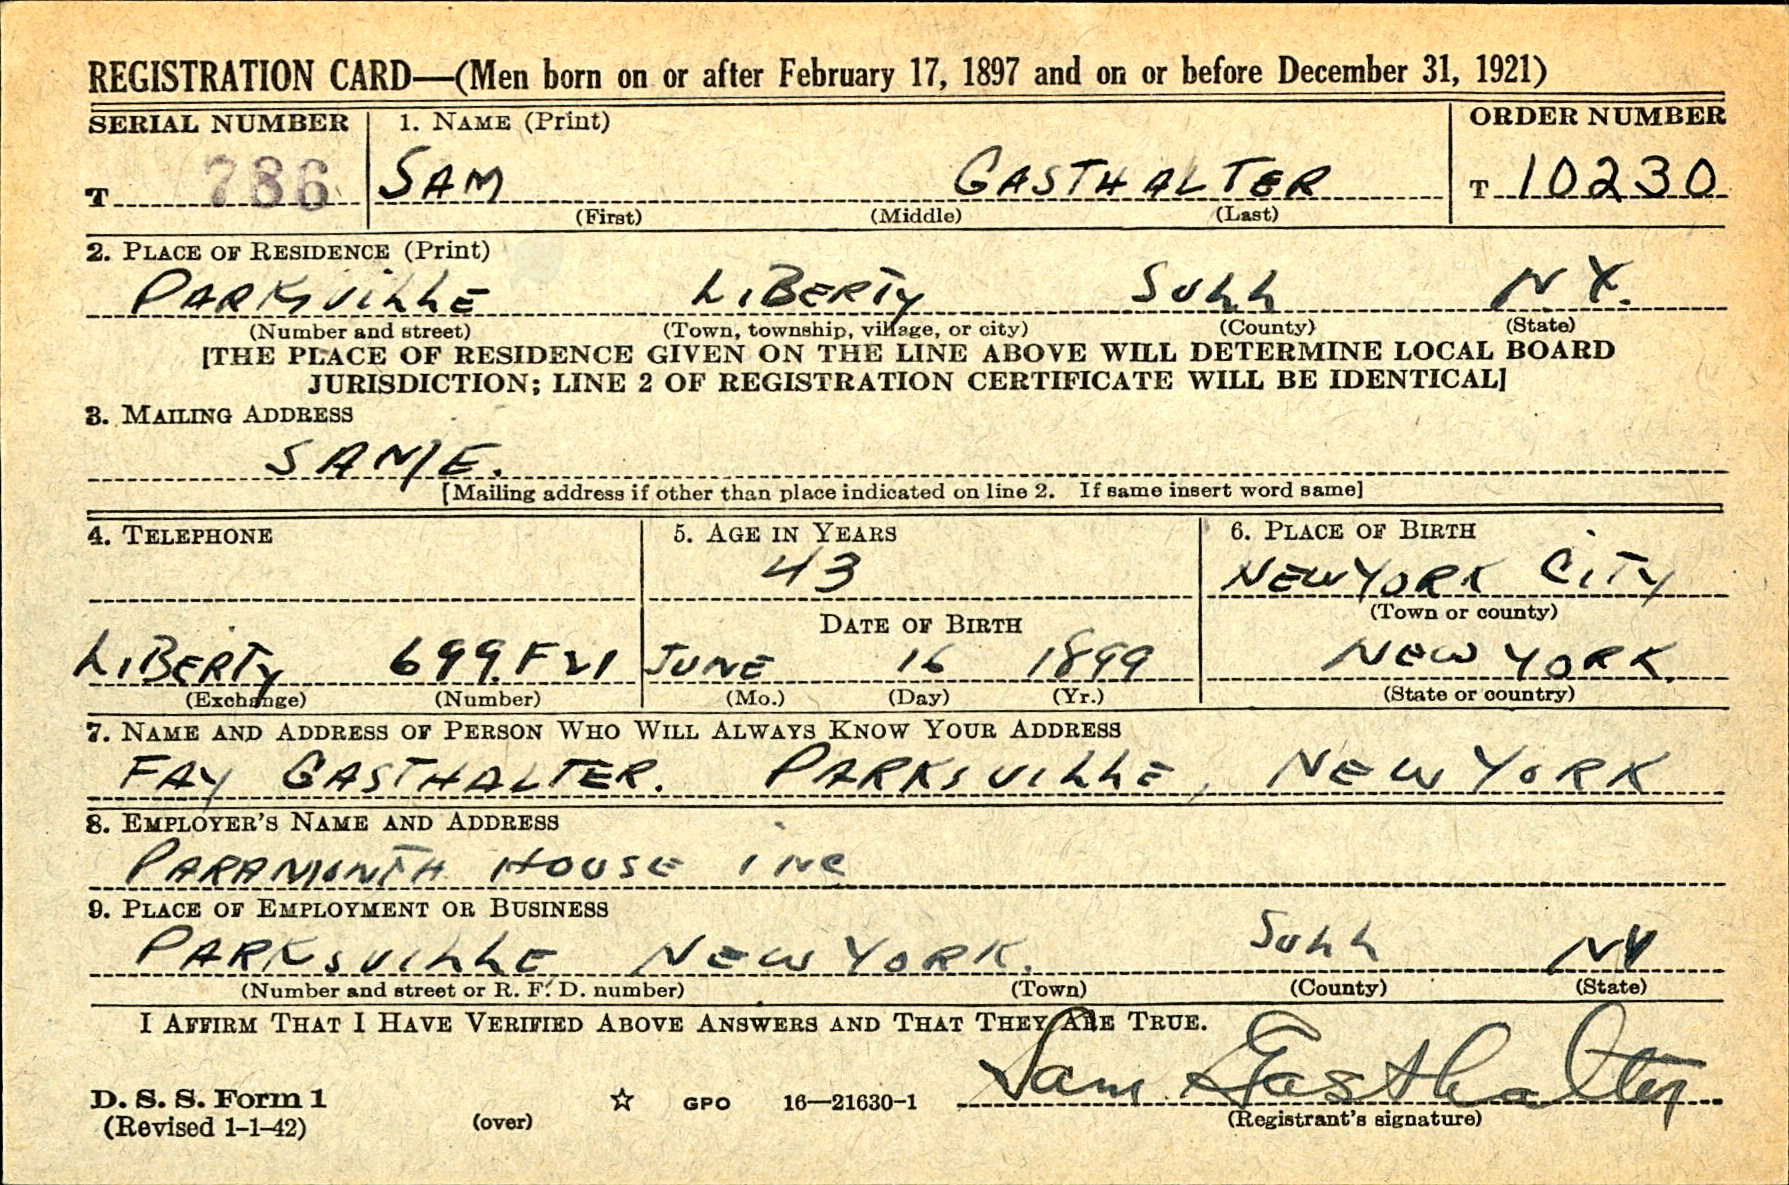 REGISTRATION CARD—(Men born on or after February 17, 1897 and on or before December 31, 1921)
SERIAL NUMBER 1. NAME (Print) ORDER NUMBER
T 786 SAM GASTHALTER T 10230
(First) (Middle) (Last)
2. PLACE OF RESIDENCE (Print)
PARKSVILLE LIBERTY SULL N Y.
(Number and street) (Town, township, village, or city) (County) (State)
[THE PLACE OF RESIDENCE GIVEN ON THE LINE ABOVE WILL DETERMINE LOCAL BOARD
JURISDICTION; LINE 2 OF REGISTRATION CERTIFICATE WILL BE IDENTICAL]
3. MAILING ADDRESS
SAME.
[Mailing address if other than place indicated on line 2. If same insert word same]
4. TELEPHONE 5. AGE IN YEARS 6. PLACE OF BIRTH
43 NEW YORK CITY
(Town or county)
DATE OF BIRTH
LIBERTY 699.F21 JUNE 16 1899 NEW YORK.
(Exchange) (Number) (Mo.) (Day) (Yr.) (State or country)
7. NAME AND ADDRESS OF PERSON WHO WILL ALWAYS KNOW YOUR ADDRESS
FAY GASTHALTER. PARKSVILLE, NEW YORK
8. EMPLOYER'S NAME AND ADDRESS
HOUSE INC
9. PLACE OF EMPLOYMENT OR BUSINESS
PARKSVILLE NEW YORK. SULL NY
(Number and street or R. F. D. number) (Town) (County) (State)
I AFFIRM THAT I HAVE VERIFIED ABOVE ANSWERS AND THAT THEY ARE TRUE.
Sam Gasthalter
D. S. S. Form 1
(Revised 1-1-42) (over) ☆ GPO 16—21630-1 (Registrant's signature)